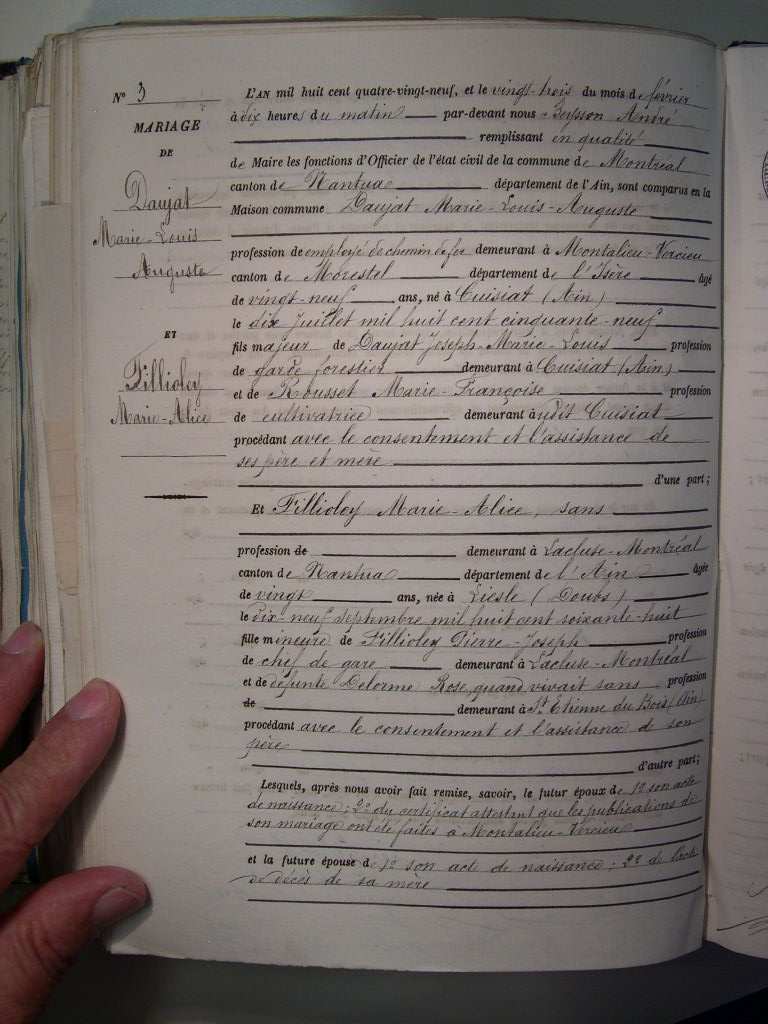 N° 3
MARIAGE
DE
Daujat
Marie-Louis
Auguste
ET
Fillioley
Marie-Alice
L'AN mil huit cent quatre-vingt-neuf, et le vingt-trois du mois de février
à dix heures du matin par-devant nous Beysson André
remplissant en qualité
de Maire les fonctions d'Officier de l'état civil de la commune de Montréal
canton de Nantua département de l'Ain, sont comparus en la
Maison commune Daujat Marie-Louis-Auguste
profession de employé de chemin de fer demeurant à Montalieu-Vercieu
canton de Morestel département de l'Isère âgé
de vingt-neuf ans, né à Cuisiat (Ain)
le dix Juillet mil huit cent cinquante-neuf
fils majeur de Daujat Joseph-Marie-Louis profession
de garde forestier demeurant à Cuisiat (Ain)
et de Rousset Marie-Françoise profession
de cultivatrice demeurant à udit Cuisiat
procédant avec le consentement et l'assistance de
ses père et mère
d'une part;
Et Fillioley Marie-Alice, sans
profession de demeurant à Lacluse-Montréal
canton de Nantua département de l'Ain âgée
de vingt ans, née à Lieste (Doubs)
le dix-neuf septembre mil huit cent soixante-huit
fille mineure de Fillioley Pierre-Joseph profession
de chef de gare demeurant à Lacluse-Montréal
et de défunte Delorme Rose, quand vivait sans profession
de demeurant à St Etienne du Bois (Ain)
procédant avec le consentement et l'assistance de son
père
d'autre part;
Lesquels, après nous avoir fait remise, savoir, le futur époux de 1° son acte
de naissance; 2° du certificat attestant que les publications de
son mariage ont été faites à Montalieu-Vercieu
et la future épouse de 1° son acte de naissance; 2° de l'acte
de décès de sa mère